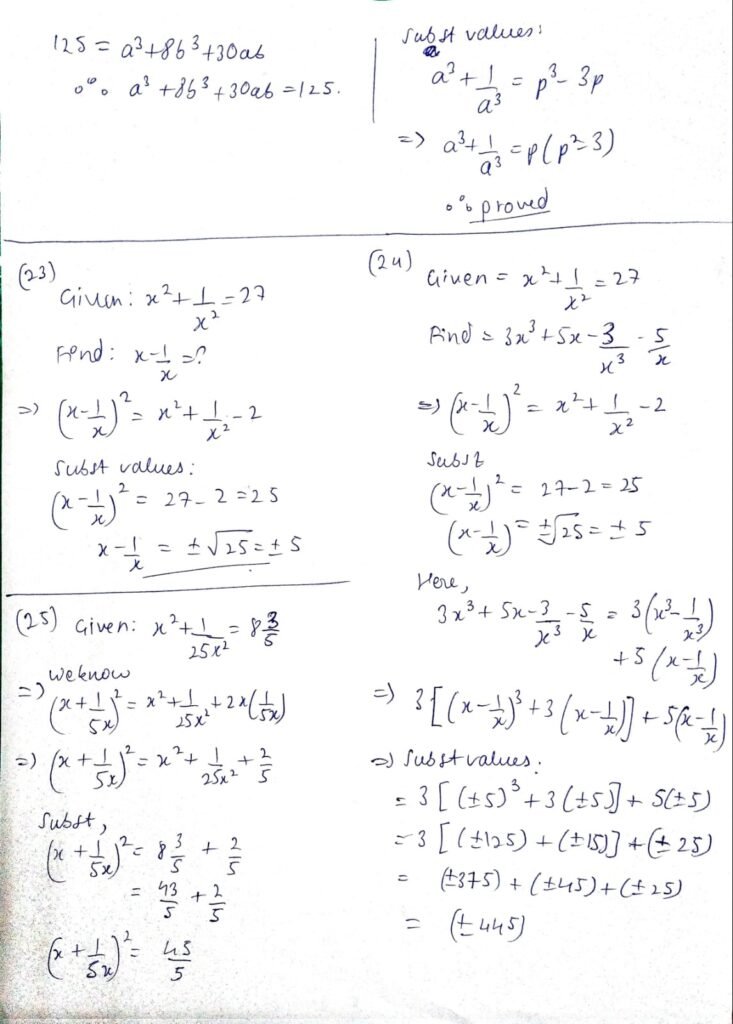 125 = a³+8b³+30ab
∴ a³+8b³+30ab = 125.
Subst values:
a³ + 1/a³ = p³ - 3p
=> a³ + 1/a³ = p(p²-3)
∴ proved
(23)
Given: x² + 1/x² = 27
Find: x - 1/x = ?
=> (x - 1/x)² = x² + 1/x² - 2
Subst values:
(x - 1/x)² = 27 - 2 = 25
x - 1/x = ±√25 = ± 5
(24)
Given = x² + 1/x² = 27
Find = 3x³ + 5x - 3/x³ - 5/x
=> (x - 1/x)² = x² + 1/x² - 2
Subst
(x - 1/x)² = 27 - 2 = 25
(x - 1/x) = ±√25 = ± 5
Here,
3x³ + 5x - 3/x³ - 5/x = 3(x³ - 1/x³)
+ 5(x - 1/x)
=> 3[(x - 1/x)³ + 3(x - 1/x)] + 5(x - 1/x)
=> Subst values:
= 3[(±5)³ + 3(±5)] + 5(±5)
= 3[(±125) + (±15)] + (± 25)
= (±375) + (±45) + (± 25)
= (± 445)
(25) Given: x² + 1/25x² = 8 3/5
we know
=> (x + 1/5x)² = x² + 1/25x² + 2x(1/5x)
=> (x + 1/5x)² = x² + 1/25x² + 2/5
Subst,
(x + 1/5x)² = 8 3/5 + 2/5
= 43/5 + 2/5
(x + 1/5x)² = 45/5